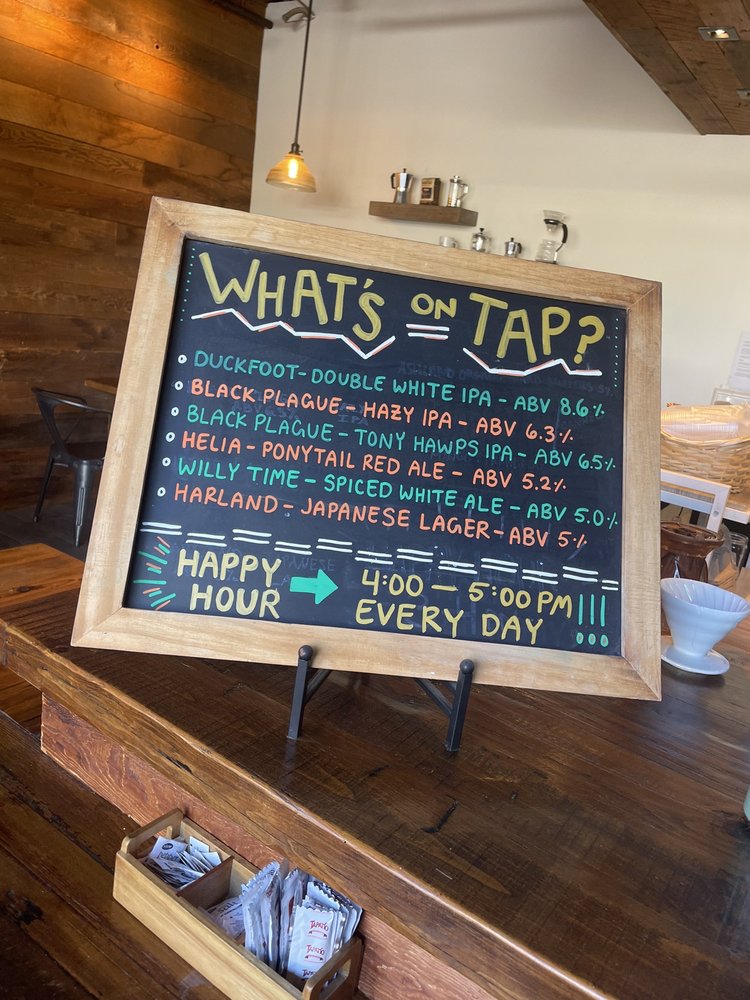 WHAT'S ON TAP?
DUCKFOOT - DOUBLE WHITE IPA - ABV 8.6%
BLACK PLAGUE - HAZY IPA - ABV 6.3%
BLACK PLAGUE - TONY HAWPS IPA - ABV 6.5%
HELIA - PONYTAIL RED ALE - ABV 5.2%
WILLY TIME - SPICED WHITE ALE - ABV 5.0%
HARLAND - JAPANESE LAGER - ABV 5%
HAPPY HOUR → 4:00 — 5:00 PM
EVERY DAY !!!
TAPATÍO
TAPATÍO